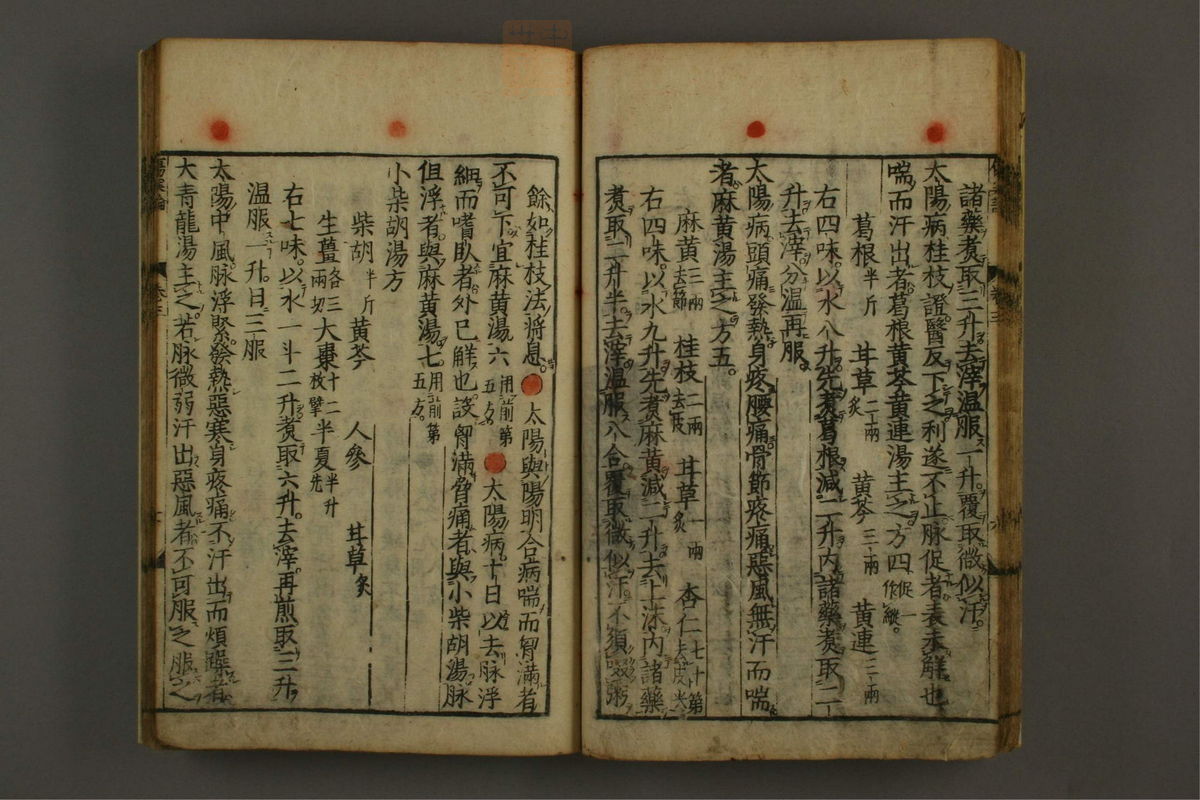 諸藥煑取三升去滓温服一升覆取微似汗
太陽病桂枝證醫反下之利遂不止脉促者表未解也
喘而汗出者葛根黄芩黄連湯主之方四促一作縱
葛根半斤 甘草二兩炙 黄芩三兩 黄連三兩
右四味以水八升先煑葛根減二升内諸藥煑取二
升去滓分温再服
太陽病頭痛發熱身疼腰痛骨節疼痛惡風無汗而喘
者麻黄湯主之方五
麻黄三兩去節 桂枝二兩去皮 甘草一兩炙 杏仁七十箇去皮尖
右四味以水九升先煑麻黄減二升去上沫内諸藥
煑取二升半去滓温服八合覆取微似汗不須啜粥
餘如桂枝法將息 太陽與陽明合病喘而胷滿者
不可下宜麻黄湯六用前第五方 太陽病十日以去脉浮
細而嗜臥者外已解也設胷滿脅痛者與小柴胡湯脉
但浮者與麻黄湯七用前第五方
小柴胡湯方
柴胡半斤 黄芩 人參 甘草炙
生薑各三兩切 大棗十二枚擘 半夏半升洗
右七味以水一斗二升煑取六升去滓再煎取三升
温服一升日三服
太陽中風脉浮緊發熱惡寒身疼痛不汗出而煩躁者
大青龍湯主之若脉微弱汗出惡風者不可服之服之